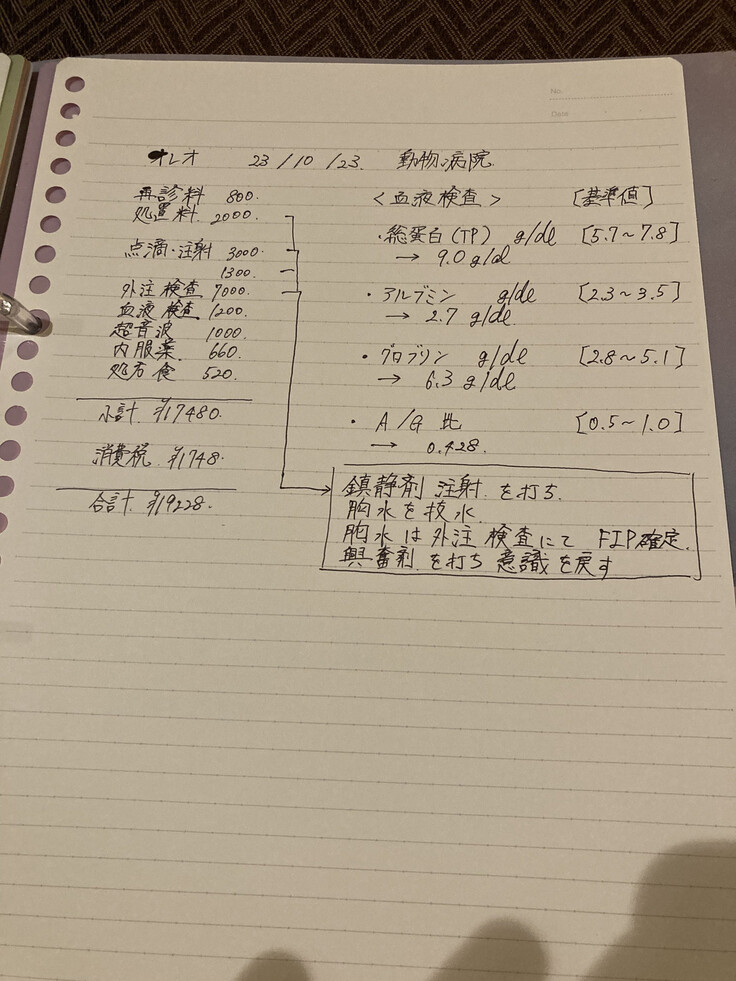 No.
Date
オレオ 23/10/23. 動物病院.
再診料 800.
処置料. 2000.
点滴・注射 3000.
1300.
外注検査 7000.
血液検査 1200.
超音波 1000.
内服薬 660.
処方食 520.
小計 ¥17480.
消費税 ¥1748.
合計 ¥19228.
<血液検査> [基準値]
・総蛋白(TP) g/dl [5.7~7.8]
→ 9.0 g/dl
・アルブミン g/dl [2.3~3.5]
→ 2.7 g/dl
・グロブリン g/dl [2.8~5.1]
→ 6.3 g/dl
・A/G 比 [0.5~1.0]
→ 0.428.
鎮静剤 注射 を打ち.
胸水を抜水.
胸水は外注検査にて FIP確定.
興奮剤を打ち 意識を戻す